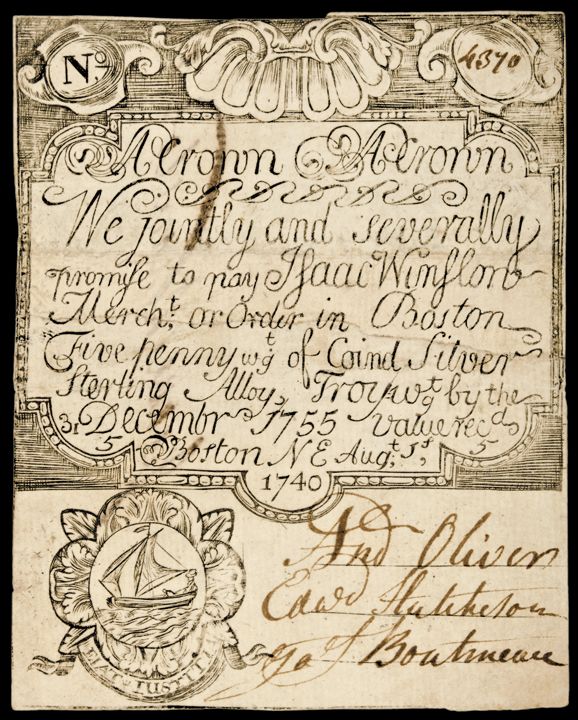 No. 4370
A Crown A Crown
We jointly and severally
promise to pay Isaac Winslow
Mercht, or Order in Boston
Five penny wgt of Coind Silver
Sterling Alloy, Troy wgt by the
31 Decembr 1755 value recd
5 Boston N E Augt, 1st, 5
1740
And Oliver
Edwd Hutchinson
Jas Boutineau
FIAT JUSTITIA